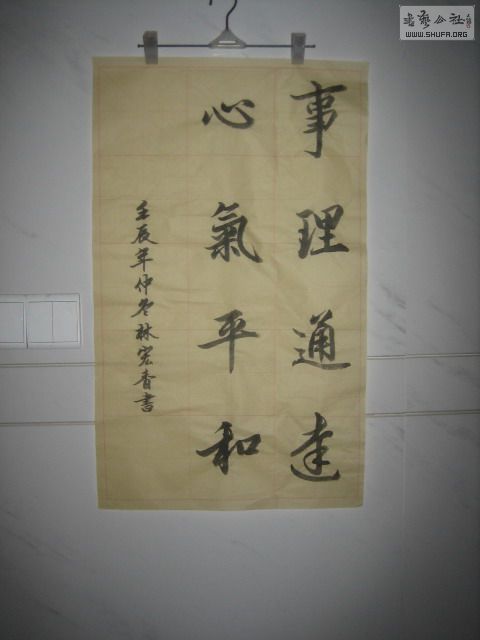 事理通達
心氣平和
壬辰年仲冬林宏香書
書藝公社
WWW.SHUFA.ORG